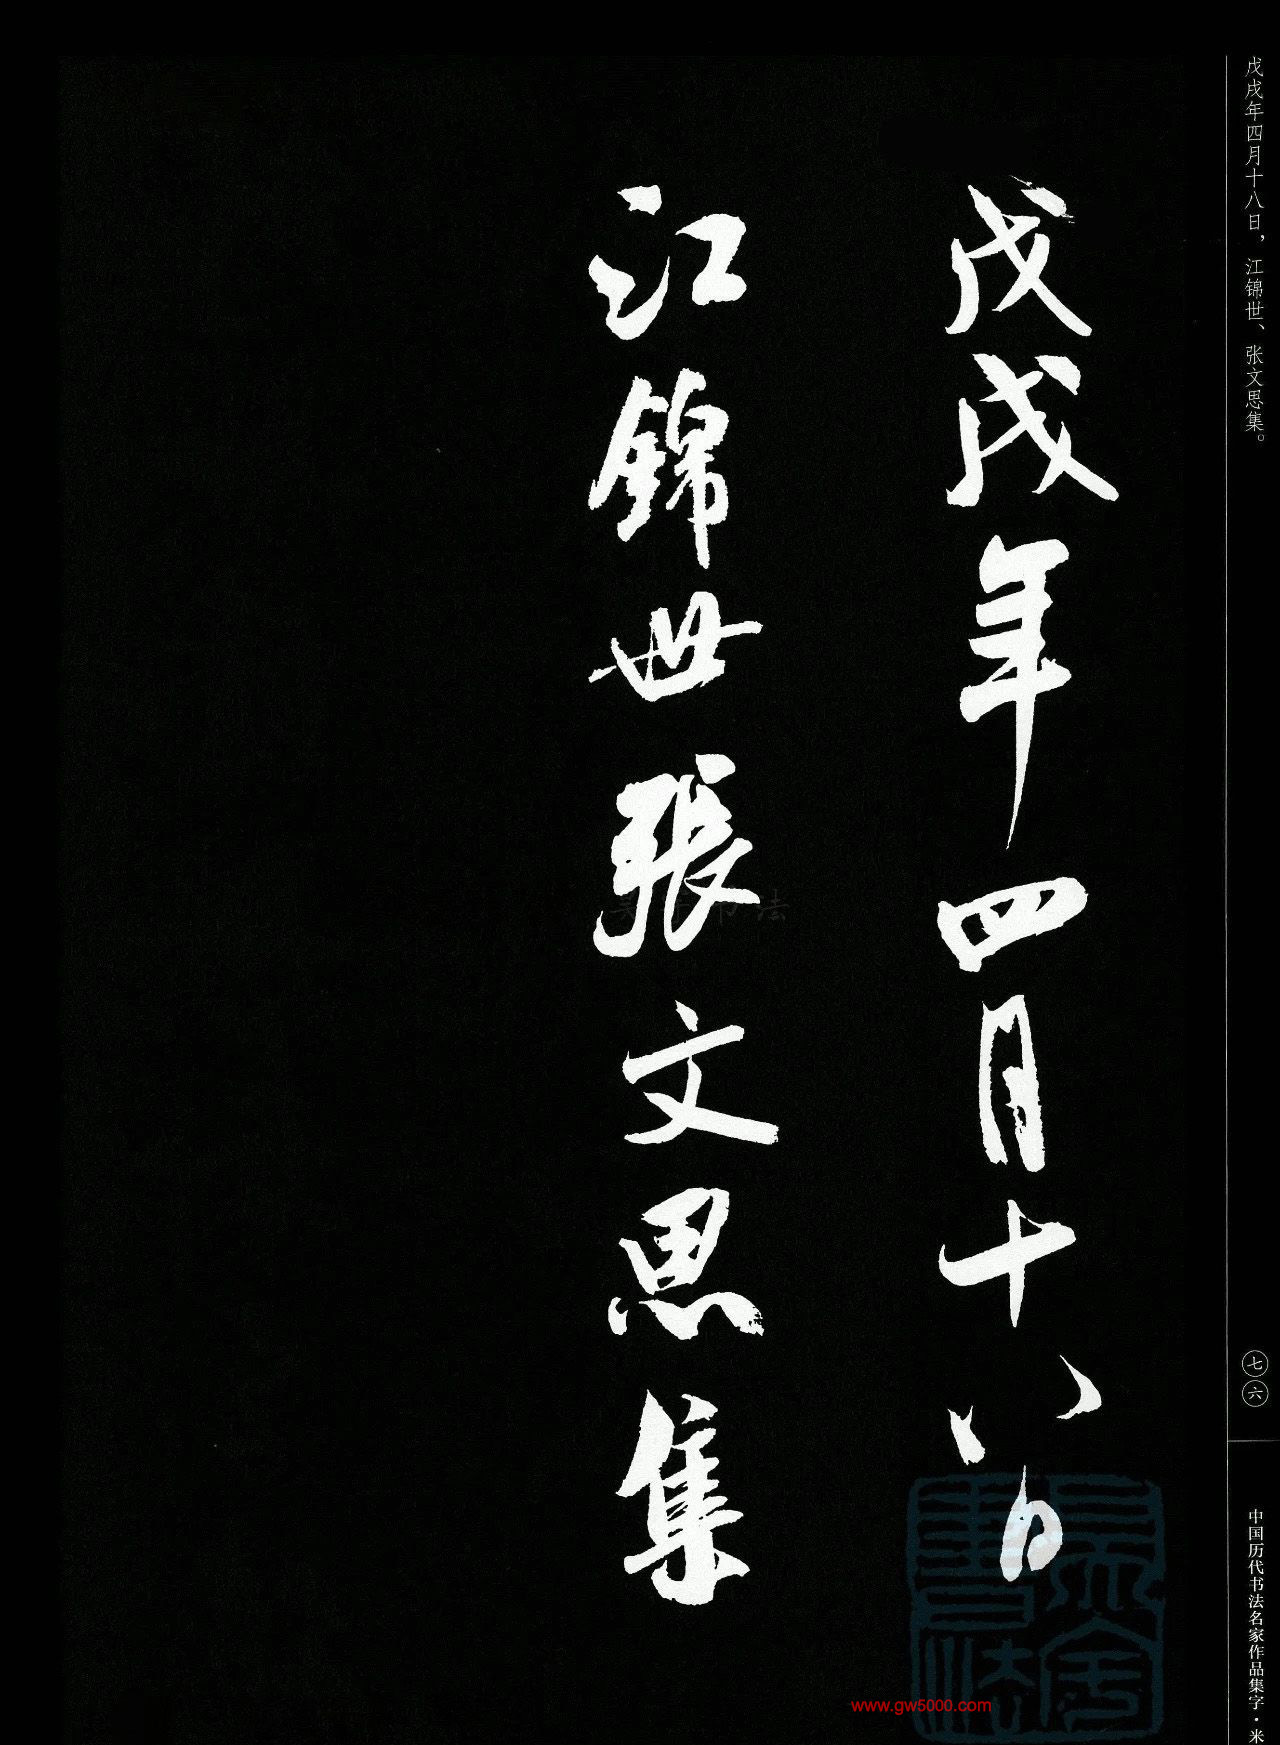 戊戌年四月十八日
江錦世張文思集
戊戌年四月十八日，江锦世、张文思集。
七六
中国历代书法名家作品集字·米
www.gw5000.com